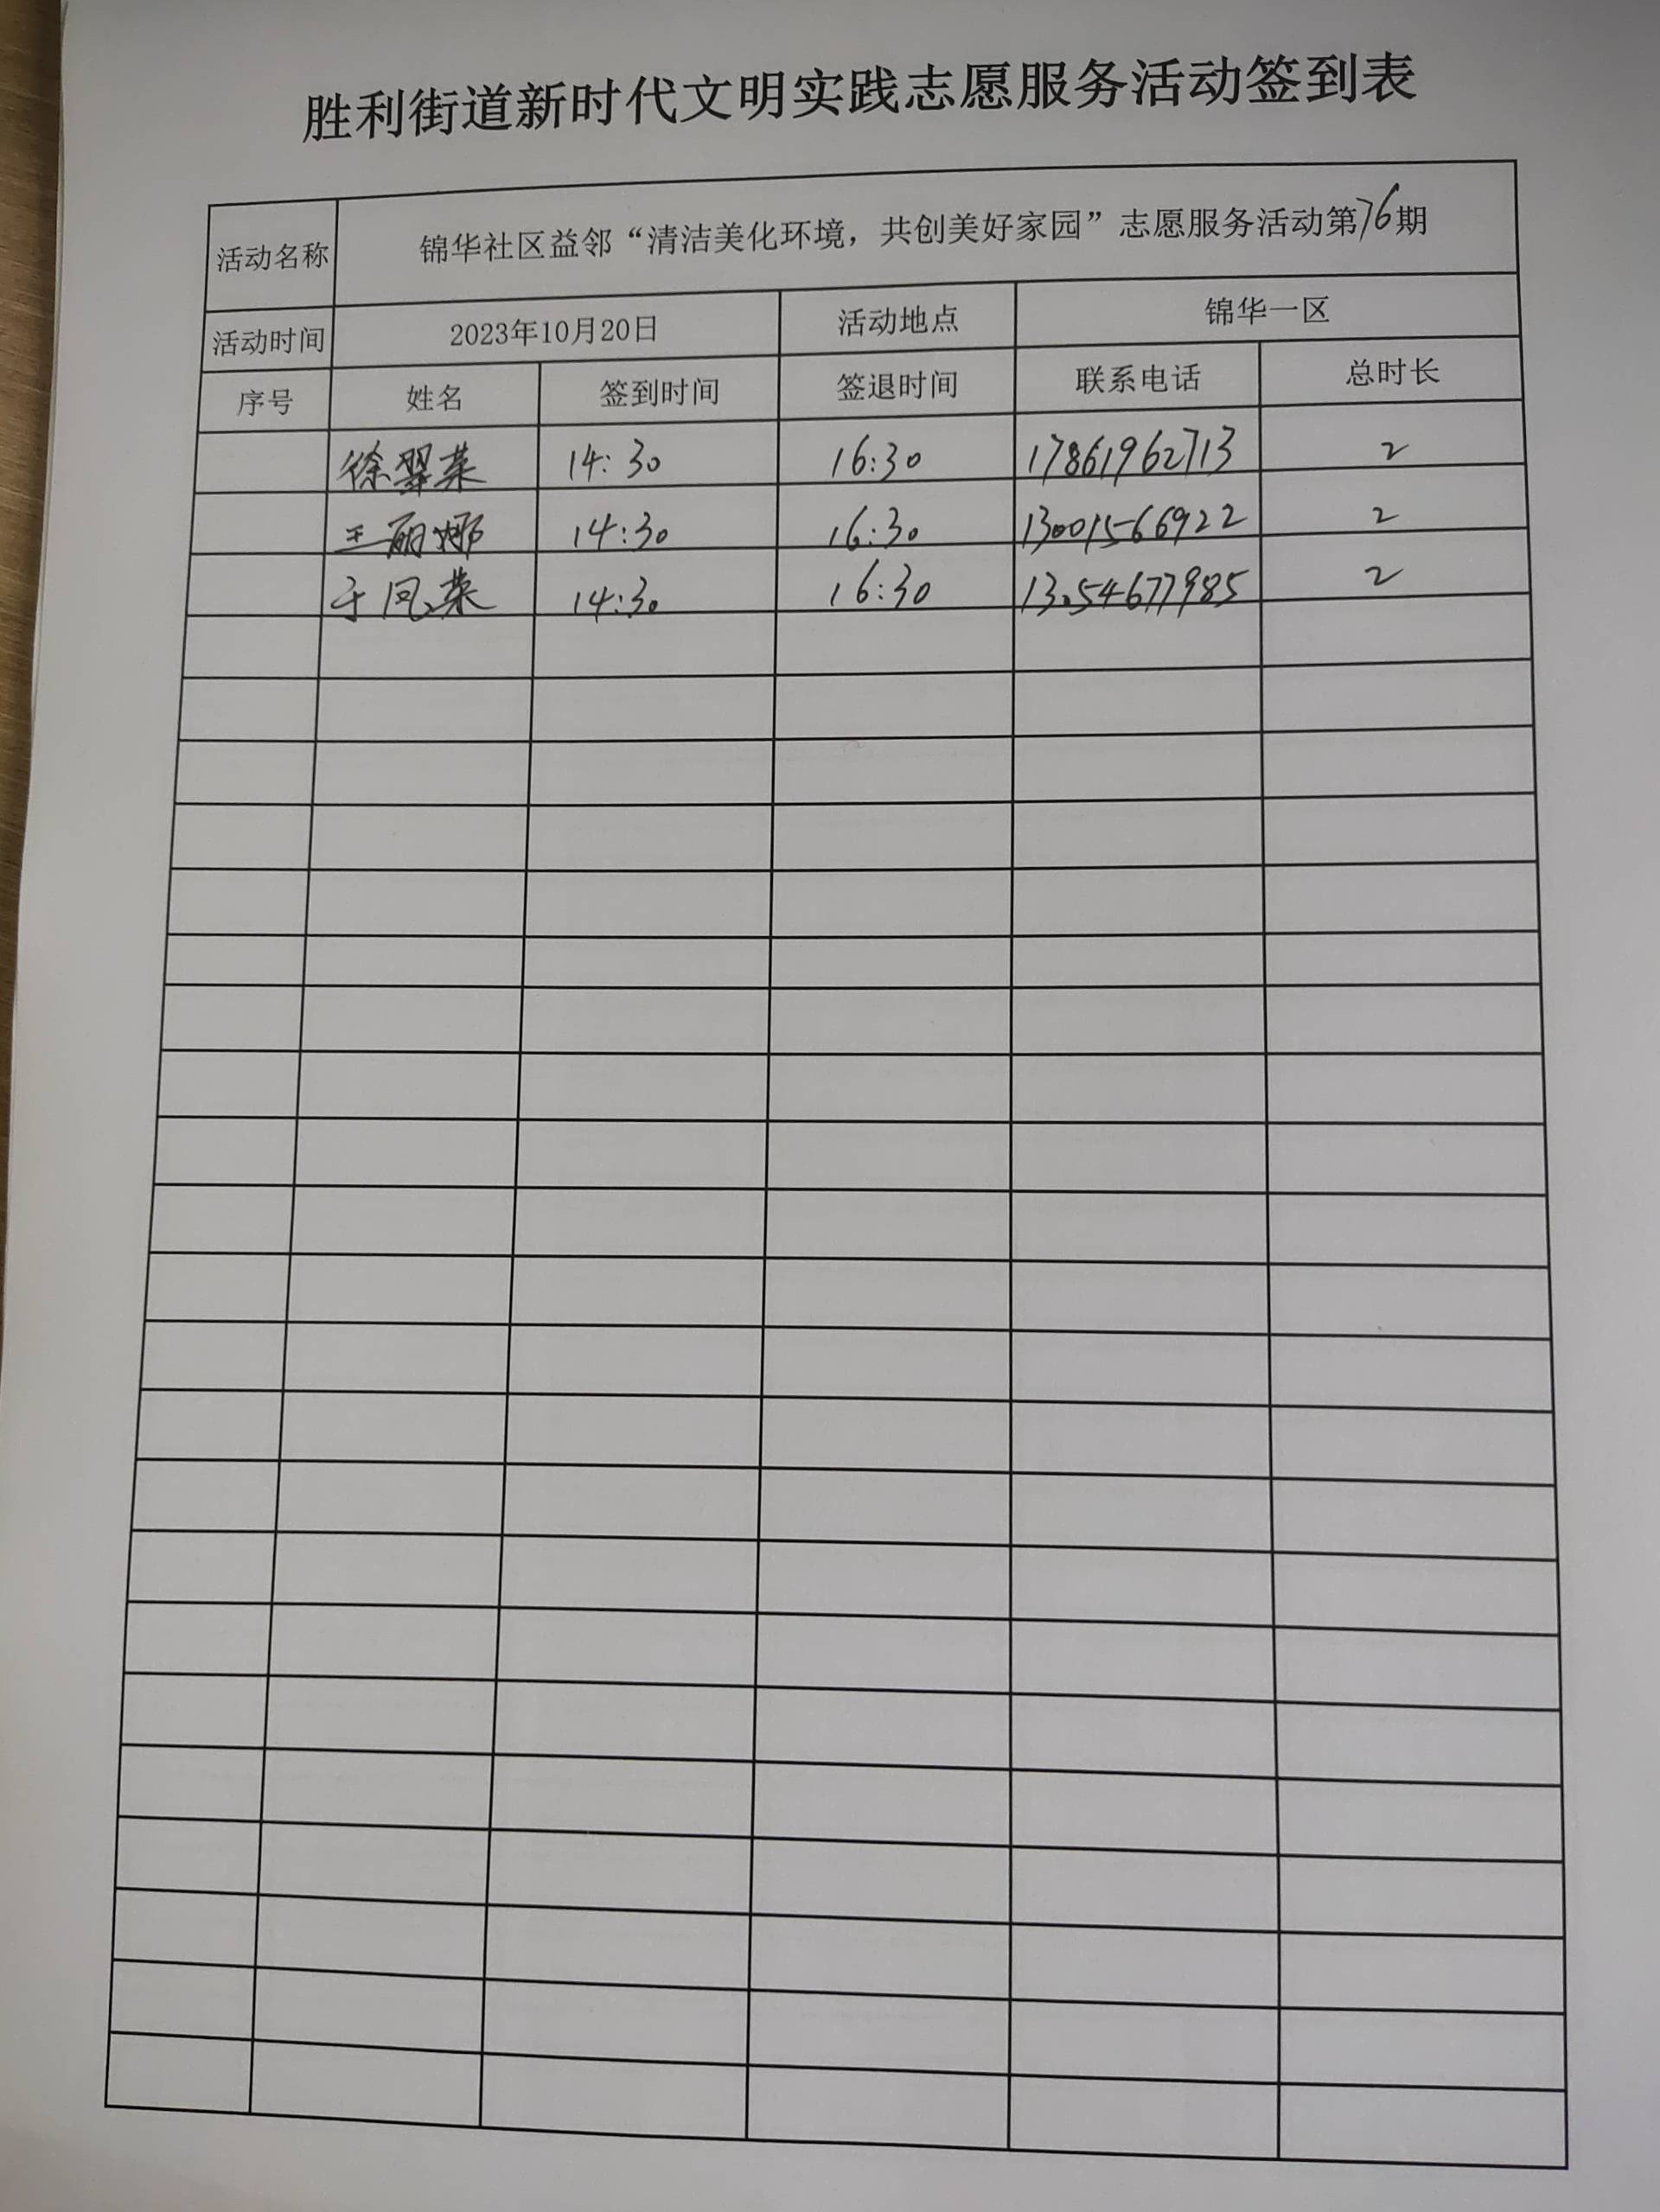 胜利街道新时代文明实践志愿服务活动签到表
活动名称 锦华社区益邻“清洁美化环境，共创美好家园”志愿服务活动第76期
活动时间 2023年10月20日 活动地点 锦华一区
序号 姓名 签到时间 签退时间 联系电话 总时长
徐翠荣 14:30 16:30 17861962713 2
王丽娜 14:30 16:30 13001566922 2
于凤荣 14:30 16:30 13054677985 2